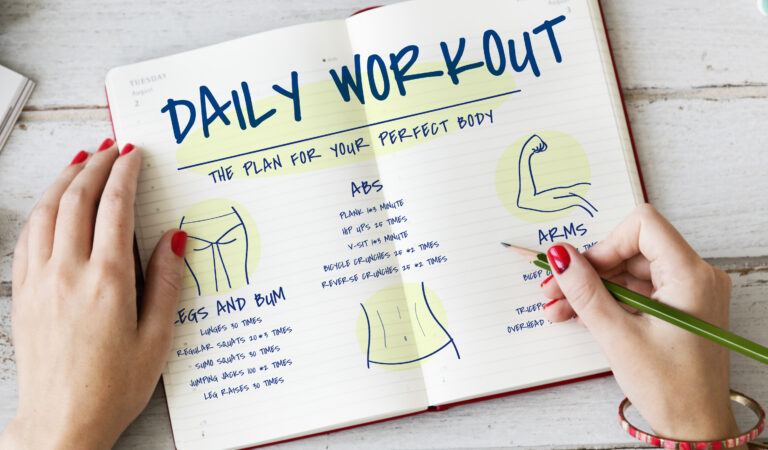 TUESDAY
August
2
3
DAILY WORKOUT
THE PLAN FOR YOUR PERFECT BODY
ABS
PLANK 1*3 MINUTE
HIP UPS 25 TIMES
V-SIT 1*3 MINUTE
BICYCLE CRUNCHES 25 *2 TIMES
REVERSE CRUNCHES 25 *2 TIMES
LEGS AND BUM
LUNGES 30 TIMES
REGULAR SQUATS 20*3 TIMES
SUMO SQUATS 30 TIMES
JUMPING JACKS 100 *2 TIMES
LEG RAISES 30 TIMES
ARMS
OVERHEAD